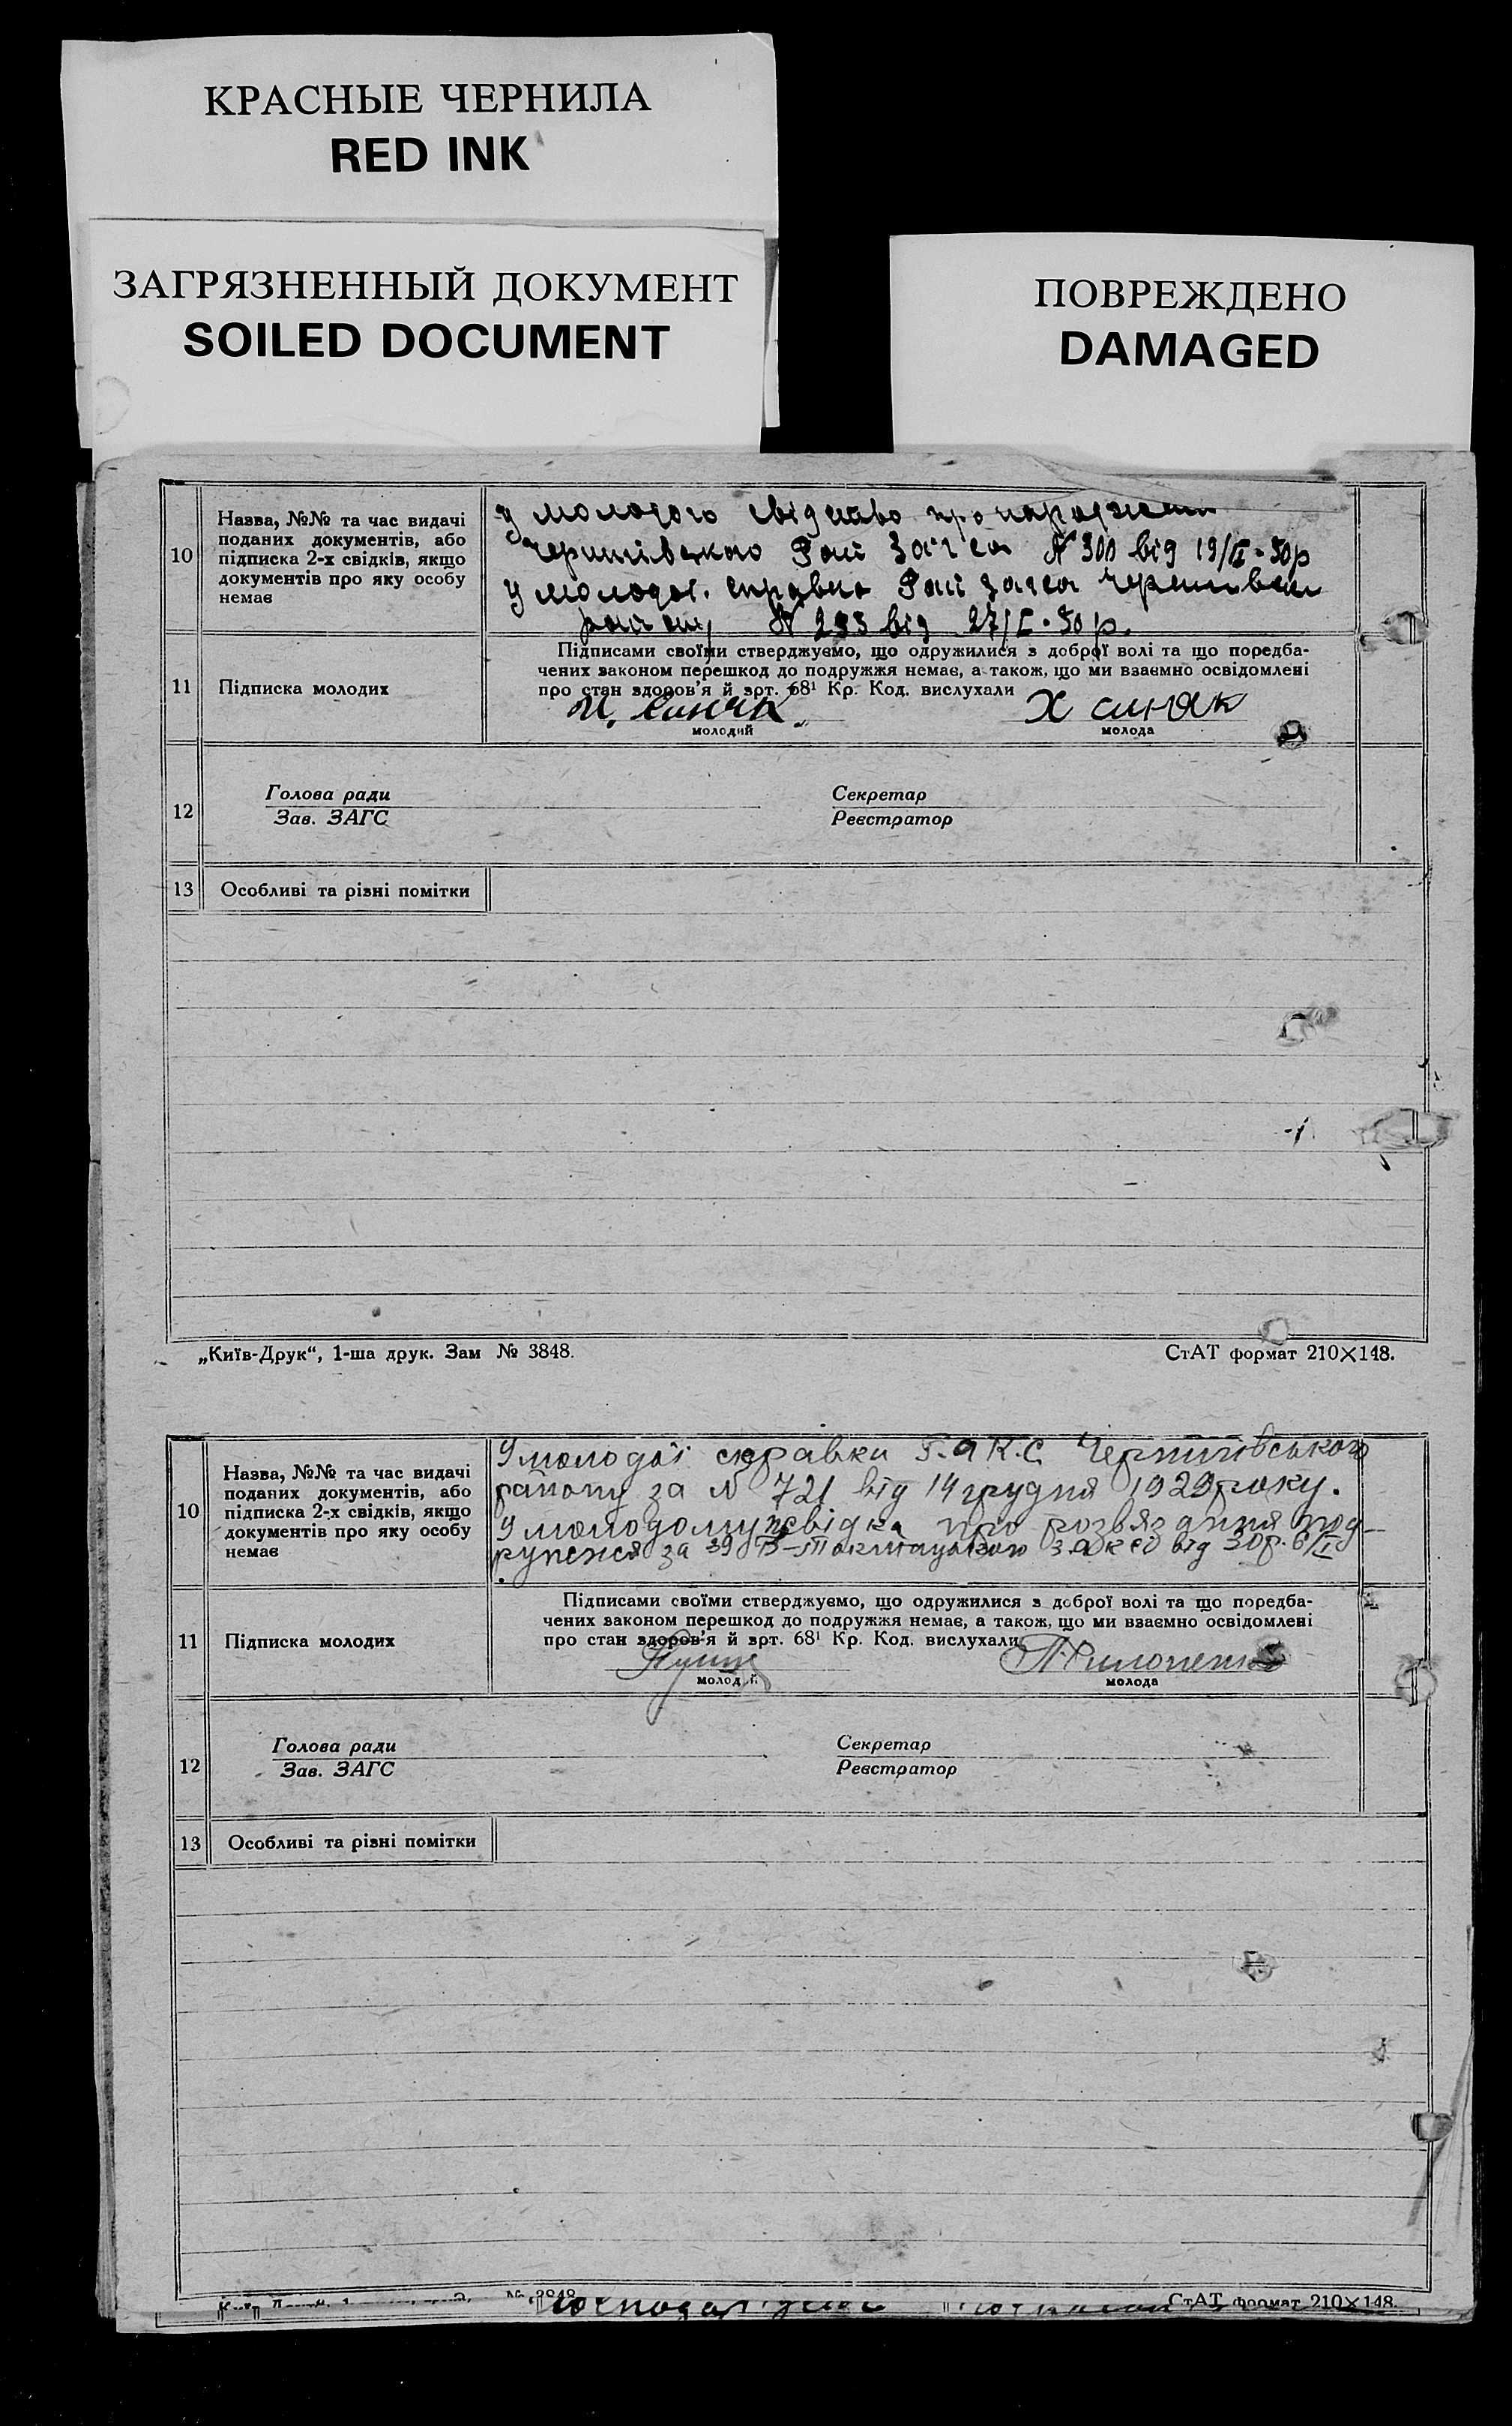 КРАСНЫЕ ЧЕРНИЛА
RED INK
ЗАГРЯЗНЕННЫЙ ДОКУМЕНТ
SOILED DOCUMENT
ПОВРЕЖДЕНО
DAMAGED
10
Назва, №№ та час видачі
поданих документів, або
підписка 2-х свідків, якщо
документів про яку особу
немає
У молодого свідитво про народжен
Чернигівского Рай Загса № 300 від 19/ІІ-30р
У молодої справка Рай Загса
району № 293 від 27/І-30 р.
11
Підписка молодих
Підписами своїми стверджуємо, що одружилися з доброї волі та що поредба-
чених законом перешкод до подружжя немає, а також, що ми взаємно освідомлені
про стан здоров'я й зрт. 68¹ Кр. Код. вислухали
Синяк
Х синяк
молодий
молода
12
Голова ради
Зав. ЗАГС
Секретар
Реєстратор
13
Особливі та різні помітки
„Київ-Друк“, 1-ша друк. Зам № 3848.
СтАТ формат 210×148.
10
Назва, №№ та час видачі
поданих документів, або
підписка 2-х свідків, якщо
документів про яку особу
немає
У молодої справки Чернигівського
району за № 721 від 14 грудня 1929 року.
У молодому свідка про розвязання под-
ружжя за 39 В-Токмацького від 30р. 6/І
11
Підписка молодих
Підписами своїми стверджуємо, що одружилися з доброї волі та що поредба-
чених законом перешкод до подружжя немає, а також, що ми взаємно освідомлені
про стан здоров'я й зрт. 68¹ Кр. Код. вислухали
молодий
молода
12
Голова ради
Зав. ЗАГС
Секретар
Реєстратор
13
Особливі та різні помітки
№ 3848
СтАТ формат 210×148.